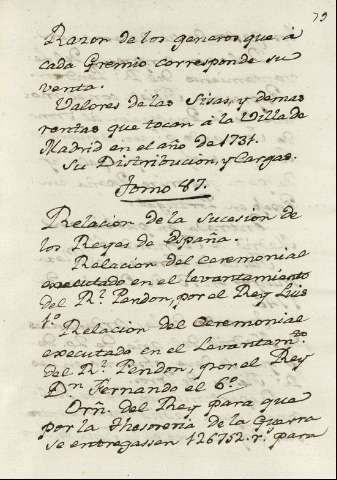 79
Razon de los generos que à
cada Gremio corresponde su
venta.
Valores de las Sisas, y demas
rentas que tocan à la Villa de
Madrid en el año de 1731.
Su Distribucion, y Cargas.
Tomo 87.
Relacion de la sucesion de
los Reyes de España.
Relacion del Ceremonial
executado en el levantamiento
del Rl. Pendon, por el Rey Luis
1º
Relacion del Ceremonial
executado en el Levantamto.
del Rl. Pendon, por el Rey
Dn. Fernando el 6º
Orn. del Rey para que
por la thesoreria de la Guerra
se entregassen 126752. rs. para